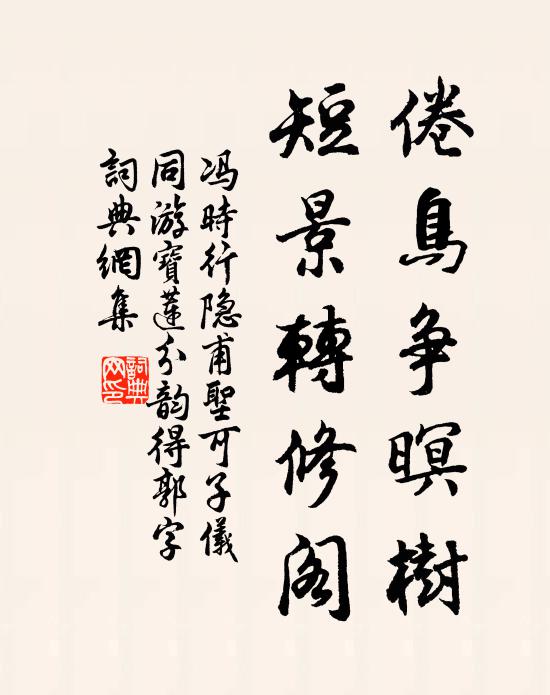 倦鳥争暝樹
短景轉修阁
冯時行隐甫聖可子儀
同游寶蓮分韵得郭字
詞典網集
詞典
网印